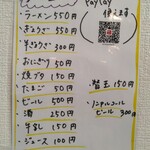 ラーメン 550円
ぎょうざ 550円
半ぎょうざ 300円
おにぎり 50円
焼ブタ 150円
たまご 50円
ビール 500円
酒 250円
牛乳 150円
ジュース 100円
PayPay
替玉 150円
ノンアルコール
ビール 300円